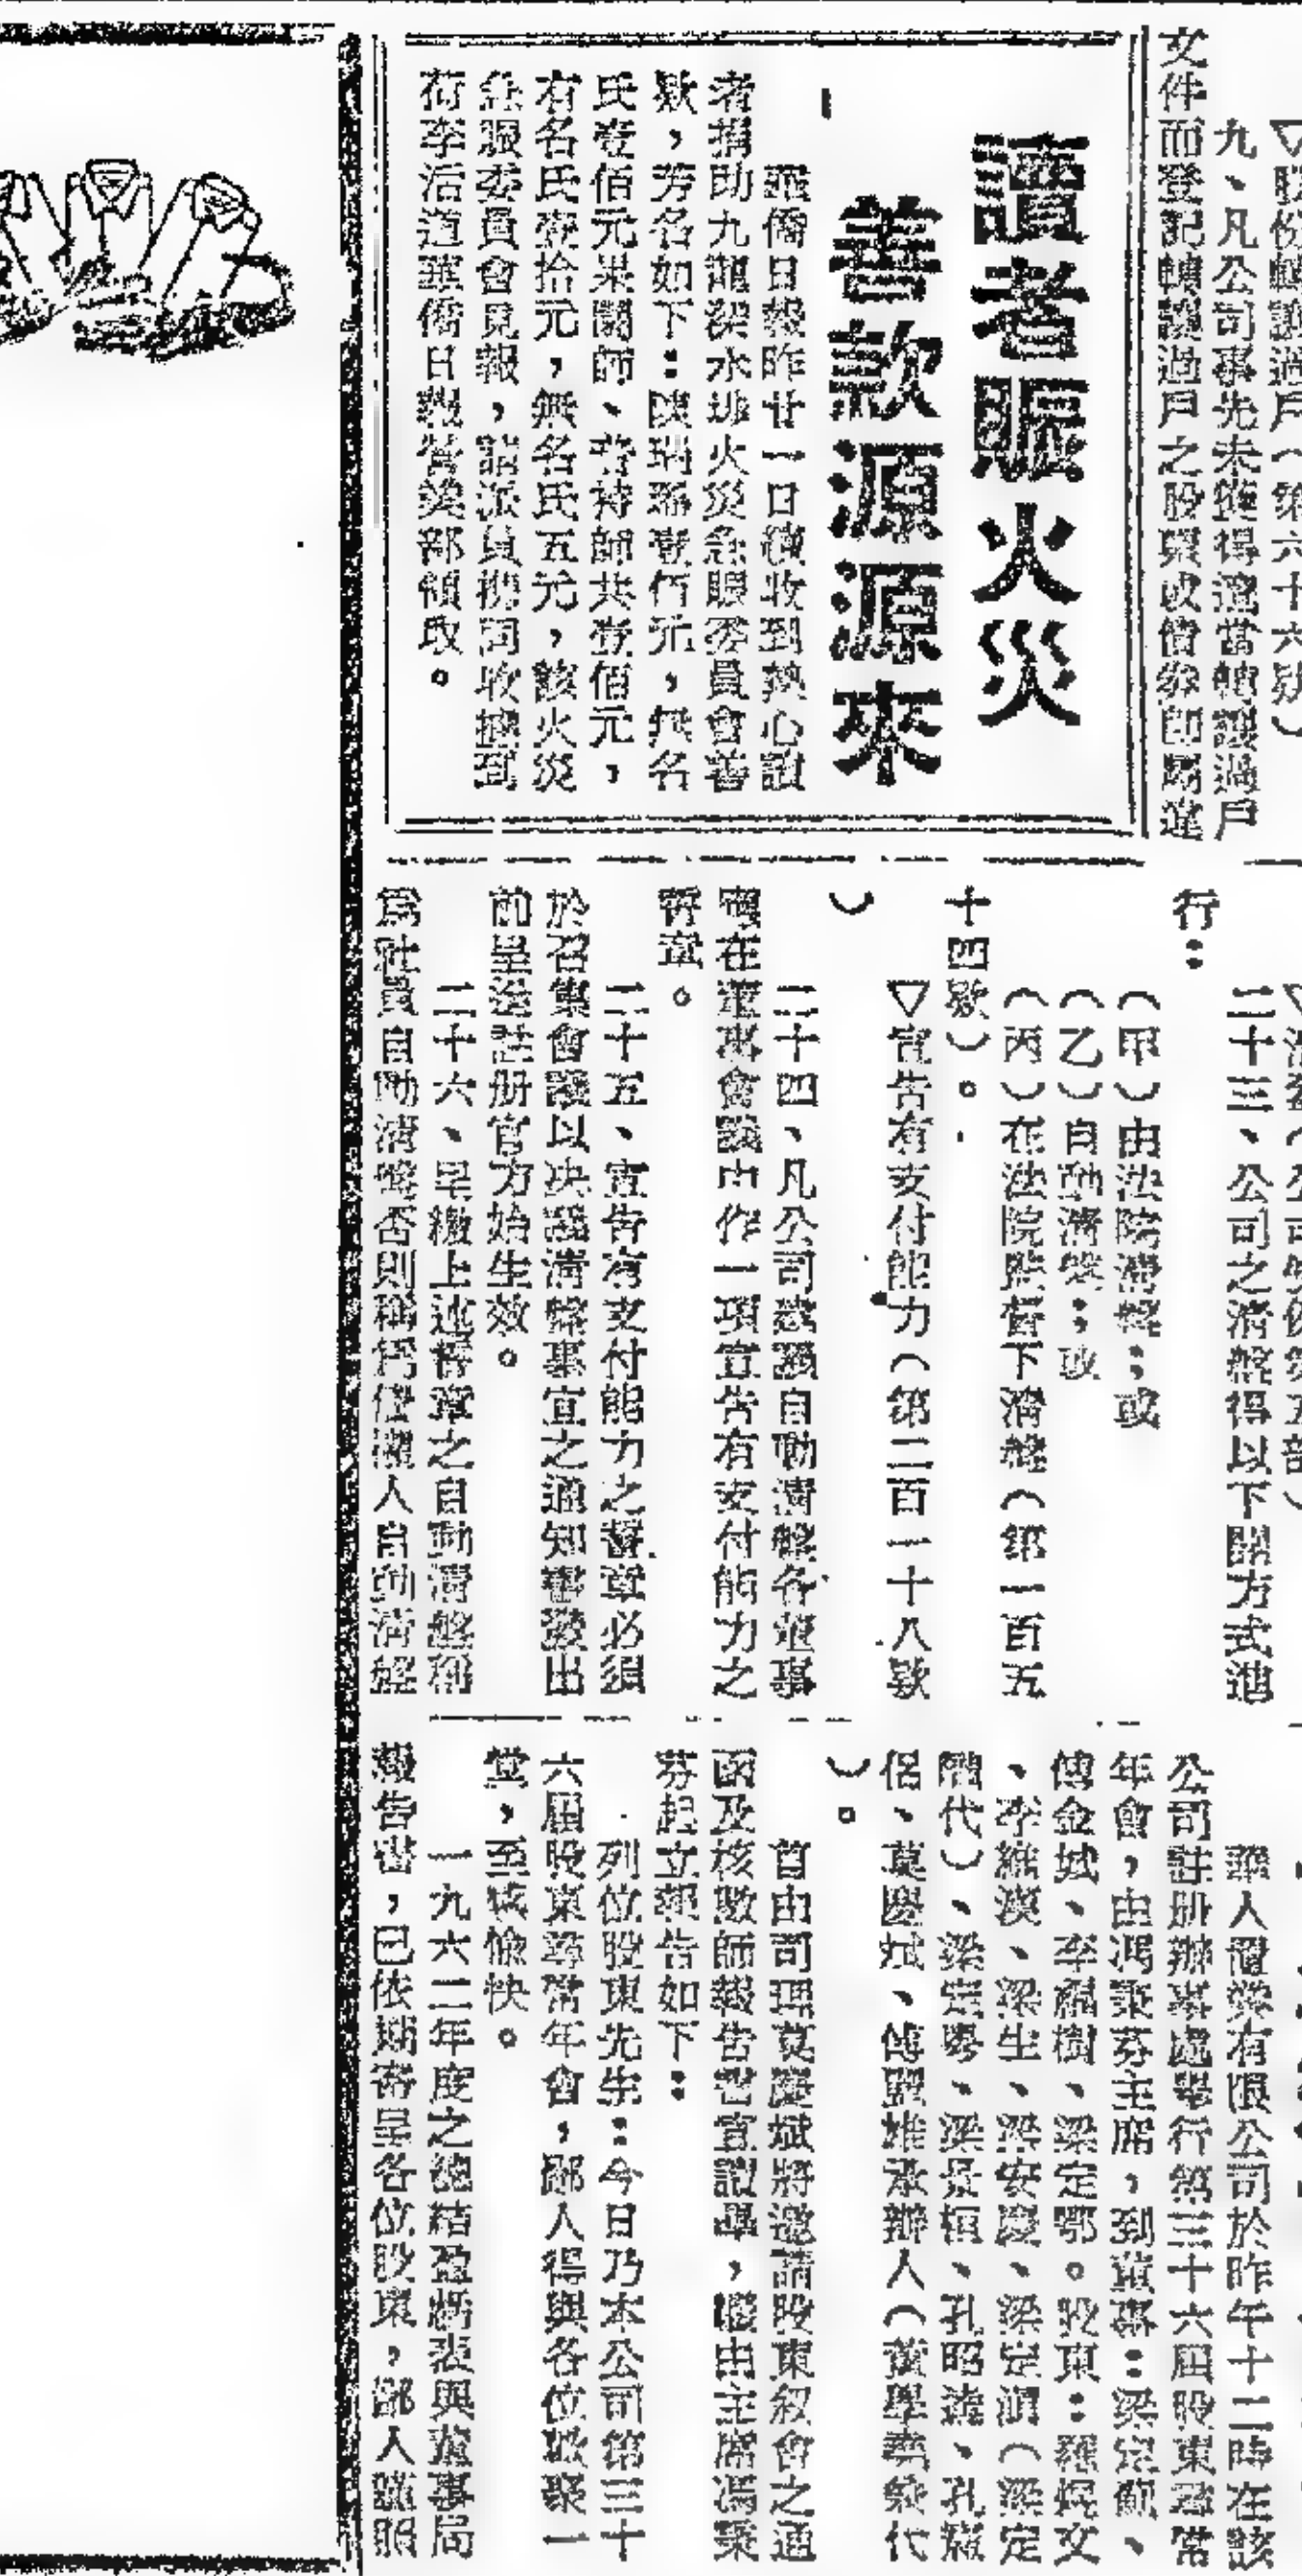 ▽股份轉讓過戶（第六十六欵）
九、凡公司事先未獲得適當轉讓過戶
文件而登記轉讓過戶之股票或債券即屬違
讀者賑火災
善款源源來
華僑日報昨廿一日續收到熱心讀
者捐助九龍深水埗火災急賑委員會善
欵，芳名如下：陳瑞 壹佰元，無名
氏壹佰元果闌師、 師共壹佰元，
有名氏壹拾元，無名氏五元，該火災
急賑委員會見報，請派員携同收據到
荷李活道華僑日報營業部領取。
▽清盤（公司 第五部）
二十三、公司之清盤得以下開方式進
行：
（甲）由法院清盤；或
（乙）自動清盤；或
（丙）在法院監督下清盤（第一百五
十四欵）。
▽宣吿有支付能力（第二百一十八欵
）
二十四、凡公司建議自動清盤各董事
需在董事會議中作一項宣吿有支付能力之
誓章。
二十五、宣吿有支付能力之誓章必須
於召集會議以决議清盤事宜之通知書發出
前呈送註册官方始生效。
二十六、呈繳上述誓章之自動清盤稱
爲社員自動清盤否則稱爲債權人自動清盤
華人置業有限公司於昨午十二時在該
公司註册辦事處舉行第三十六屆股東尋常
年會，由馮秉芬主席，到董事：梁定薊、
傅金城、李福樹、梁定鄂。股東：羅焜文
、李維漢、梁生、梁安慶、梁定 （梁定
閩代）、梁定粤、梁景桓、孔昭 、孔
侶、莫慶斌、傅 雄承辦人（黃學 代
）。
首由司理莫慶斌將邀請股東叙會之通
函及核數師報吿書宣讀畢，繼由主席馮秉
芬起立報吿如下：
列位股東先生：今日乃本公司第三十
六屆股東尋常年會，鄙人得與各位歡聚一
堂，至感愉快。
一九六二年度之總結盈虧表與董事局
報吿書，已依期寄呈各位股東，鄙人謹照